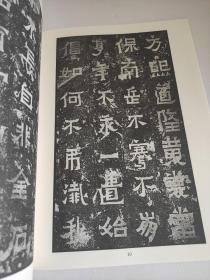 方熙道隆黄裳當
保南岳不騫不崩
享年不永一匱始
倡如何不弔殲我
不長自非金石
10